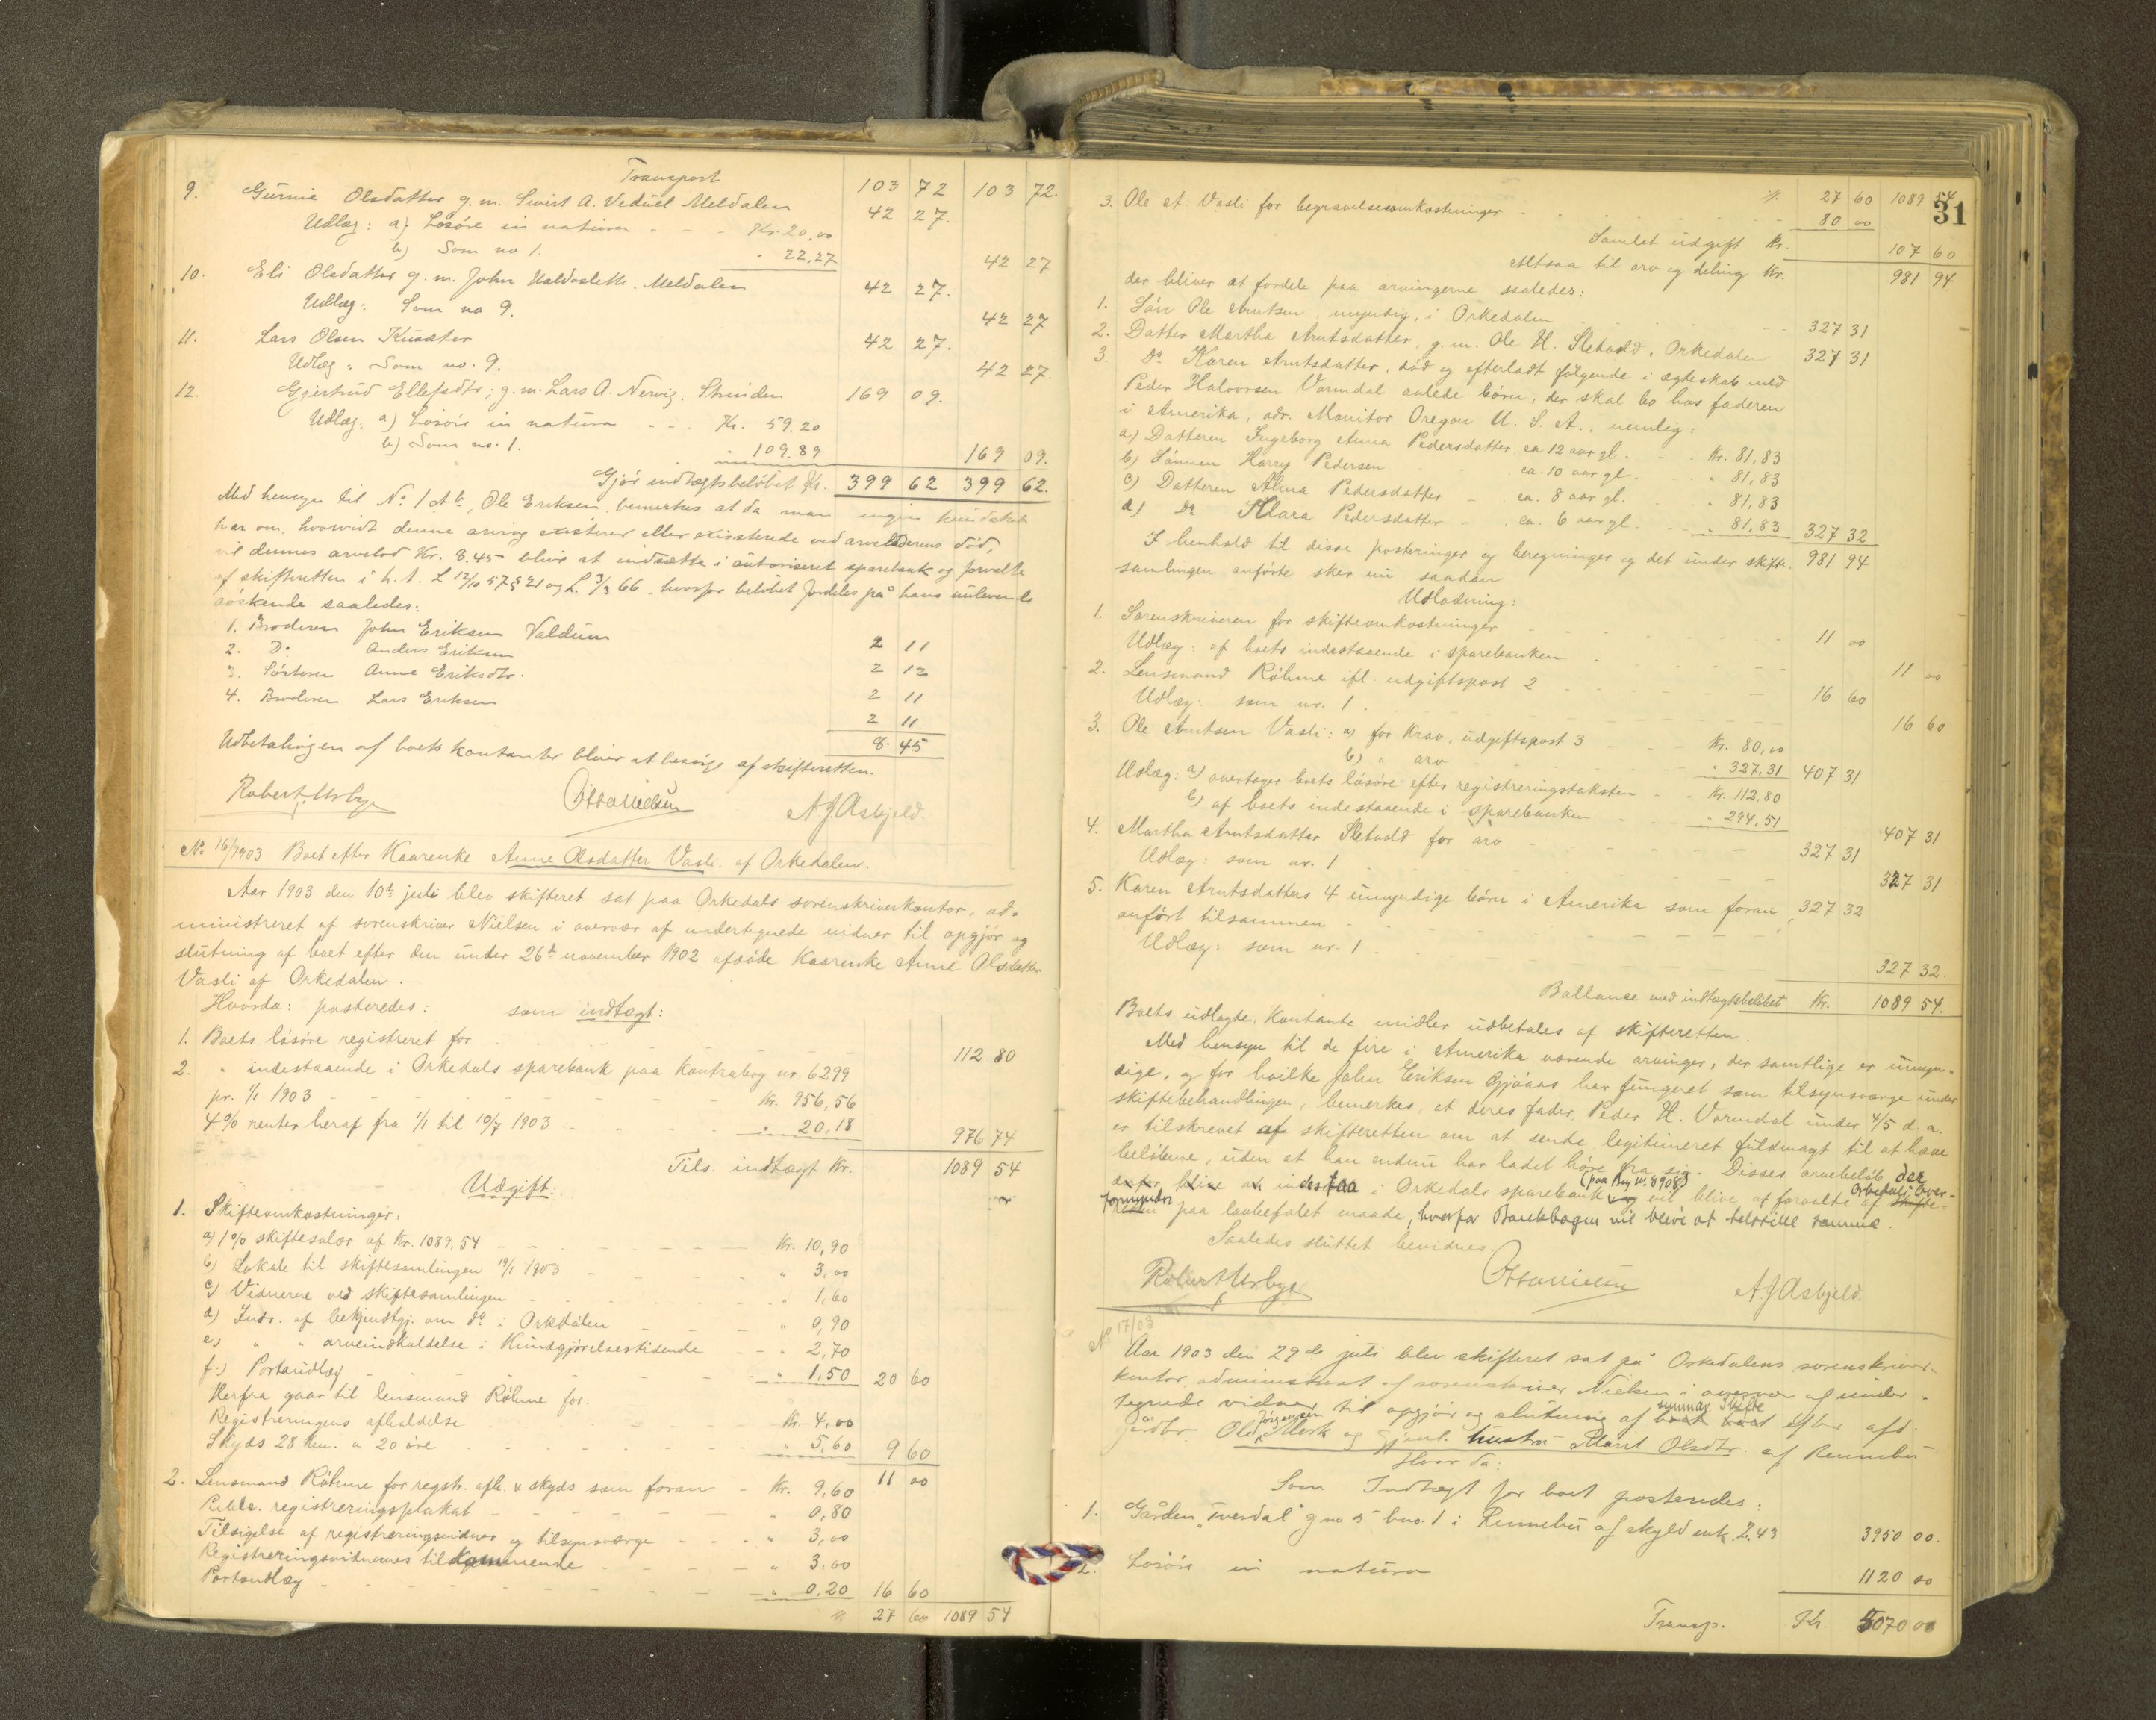 Transport 103 72 103 72.
9. Gurine Olsdatter g. m. Sivert A. Meldalen 42 27.
Udlæg: a) Løsøre in natura - - Kr. 20,00
b) Som no 1. " 22,27 42 27
10. Eli Olsdatter g. m. John Meldalen 42 27.
Udlæg: Som no 9. 42 27
11. Lars Olsen 42 27.
Udlæg: Som no. 9. 42 27.
12. Gjertrud Ellefsdtr; g. m. Lars A. Nervig. Strinden 169 09.
Udlæg: a) Løsøre in natura - - . Kr. 59.20
b) Som no. 1. " 109.89 169 09.
Gjør indtægtsbeløbet Kr. 399 62 399 62.
Med hensyn til No. 1 Ole Eriksen, bemerkes at da man ingen kundskab
har om, hvorvidt denne arving existerer eller existerede ved arveladerens død,
vil dennes arvelod Kr. 8.45 blive at indsætte i autoriseret sparebank og forvalte
af skifteretten i h. t. L 12/10 57 § 21 og L. 3/3 66, hvorfor beløbet fordeles på hans
søskende saaledes:
1. Broderen John Eriksen Valdum 2 11
2. Do Anders Eriksen 2 12
3. Søsteren Anne Eriksdtr. 2 11
4. Broderen Lars Eriksen 2 11
8. 45
Udbetalingen af boets kontanter bliver at besørge af skifteretten.
Robert Urbye Otto Nielsen A J Asbjeld.
No 16/1903 Boet efter Kaarenke Anne Olsdatter Vasli af Orkedalen.
Aar 1903 den 10de juli blev skifteret sat paa Orkedals sorenskriverkontor, ad-
ministreret af sorenskriver Nielsen i overvær af undertegnede vidner til opgjør og
slutning af boet efter den under 26de november 1902 afdøde Kaarenke Anne Olsdatter
Vasli af Orkedalen.
Hvorda: posteredes: som indtægt:
1. Boets løsøre registreret for 112 80
2. " indestaaende i Orkedals sparebank paa Kontrabog nr. 6299
pr. 1/1 1903 - - Kr. 956,56
4% renter heraf fra 1/1 til 10/7 1903 " 20,18 976 74
Tils. indtægt Kr. 1089 54
Udgift:
1. Skifteomkostninger:
a) 1% skiftesalær af Kr. 1089,54 - Kr. 10,90
b) Lokale til skiftesamlingen 1903 - " 3,00
c) Vidnerne ved skiftesamlingen " 1,60
d) Inds. af bekjendtgj. om do i Orkdalen " 0,90
e) " " arveindkaldelse i Kundgjørelsestidende - " 2,70
f.) Portoudlæg - " 1,50 20 60
Herfra gaar til lensmand Røhme for:
Registreringens afholdelse Kr. 4,00
Skyds 28 Km. a 20 øre " 5,60 9 60
11 00
2. Lensmand Røhme for regstr. afh. & skyds som foran - Kr. 9,60
Publ. registreringsplakat - " 0,80
Tilsigelse af registreringsvidner og tilsynsværge - " 3,00
Registreringsvidnernes tilkommende - " 3.00
Portoudlæg - " 0.20 16 60
% 27 60 1089 54
31
% 27 60 1089 54
3. Ole A. Vasli for begravelsesomkostninger 80 00
Samlet udgift Kr. 107 60
Altsaa til arv og deling Kr. 981 94
der bliver at fordele paa arvingerne saaledes:
1. Søn Ole Arntsen, myndig, i Orkedalen 327 31
2. Datter Martha Arntsdatter, g. m. Ole H. Sletvold, Orkedalen 327 31
3. Do Karen Arntsdatter, død og efterladt følgende i ægteskab med
Peder Halvorsen Vormdal avlede børn, der skal bo hos faderen
i Amerika, adr. Monitor Oregon U. S. A., nemlig:
a) Datteren Ingeborg Anna Pedersdatter ca 12 aar gl. - Kr. 81,83
b) Sønnen Harry Pedersen ca. 10 aar gl. " 81,83
c) Datteren Alma Pedersdatter - ca. 8 aar gl. " 81,83
d) Do Klara Pedersdatter - ca. 6 aar gl. - " 81,83 327 32
I henhold til disse posteringer og beregninger og det under skifte- 981 94
samlingen anførte sker nu saadan
Udlodning:
1. Sorenskriveren for skifteomkostninger 11 00
Udlæg: af boets indestaaende i sparebanken 11 00
2. Lensmand Røhme ifl. udgiftspost 2 16 60
Udlæg: som nr. 1. 16 60
3. Ole Arntsen Vasli: a) for krav, udgiftspost 3 - Kr. 80,00
b) " arv " 327,31 407 31
Udlæg: a) overtager boets løsøre efter registreringstaksten - Kr. 112,80
b) af boets indestaaende i sparebanken " 294,51 407 31
4. Martha Arntsdatter Sletvold for arv 327 31
Udlæg: som nr. 1 327 31
5. Karen Arntsdatters 4 umyndige børn i Amerika som foran
anført tilsammen 327 32
Udlæg: som nr. 1. 327 32.
Ballance med indtægtsbeløbet Kr. 1089 54.
Boets udlagte, kontante midler udbetales af skifteretten.
Med hensyn til de fire i Amerika værende arvinger, der samtlige er umyn-
dige, og for hvilke John Eriksen Gjønnes har fungeret som tilsynsværge under
skiftebehandlingen, bemerkes, at deres fader, Peder H. Vormdal under 4/5 d. a.
er tilskrevet af skifteretten om at sende legitimeret fuldmagt til at hæve
beløbene, uden at han endnu har ladet høre fra sig. Disses arvebeløb der
derfor blive at indestaa i Orkedals sparebank (paa Bog nr. 8908) og vil blive at forvalte af Orkedals Over-
formynderi paa lovbefalet maade, hvorfor Bankbogen vil blive at tilstille samme.
Saaledes sluttet bevidnes.
Robert Urbye Otto Nielsen A J Asbjeld.
No 17/03
Aar 1903 den 29de juli blev skifteret sat på Orkedalens sorenskriver-
kontor, administreret af sorenskriver Nielsen i overvær af under-
tegnede vidner til opgjør og slutning af summar. Skifte efter afd.
gårdbr. Ole Jørgensen Merk og gjenl. hustru Marit Olsdtr. af Rennebu
Hvor da:
Som Indtægt for boet posteredes:
1. Gården "Tverdal" g no 5 bno. 1 i Rennebu af skyld mk. 2.43 3950 00.
2. Løsøre in natura 1120 00
Transp. Kr. 5070 00